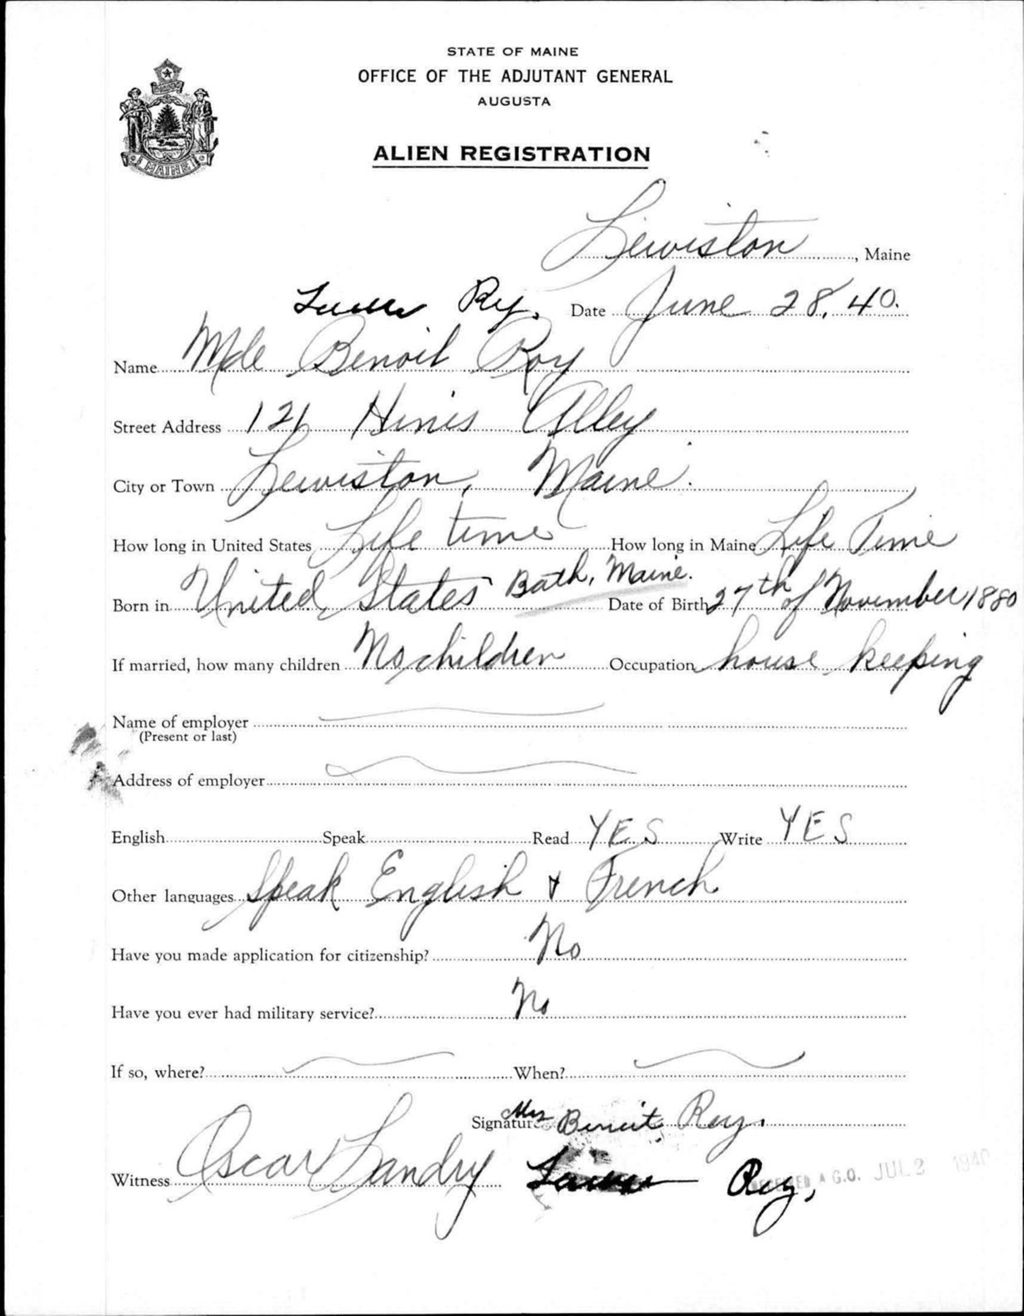 STATE OF MAINE
OFFICE OF THE ADJUTANT GENERAL
AUGUSTA
MAINE
ALIEN REGISTRATION
Lewiston, Maine
Roy. Date June 28, 40.
Name Mde Benoit Roy
Street Address 121 Hines Alley
City or Town Lewiston, Maine.
How long in United States Life time How long in Maine Life Time
Born in United States Bath, Maine. Date of Birth 27th of November 1880
If married, how many children No children Occupation house keeping
Name of employer
(Present or last)
Address of employer
English Speak Read YES Write YES
Other languages Speak English & French
Have you made application for citizenship? No
Have you ever had military service? No
If so, where? When?
Signature Mrs Benoit Roy.
Witness Oscar Landry Roy,
RECEIVED A.G.O. JUL 2 1940